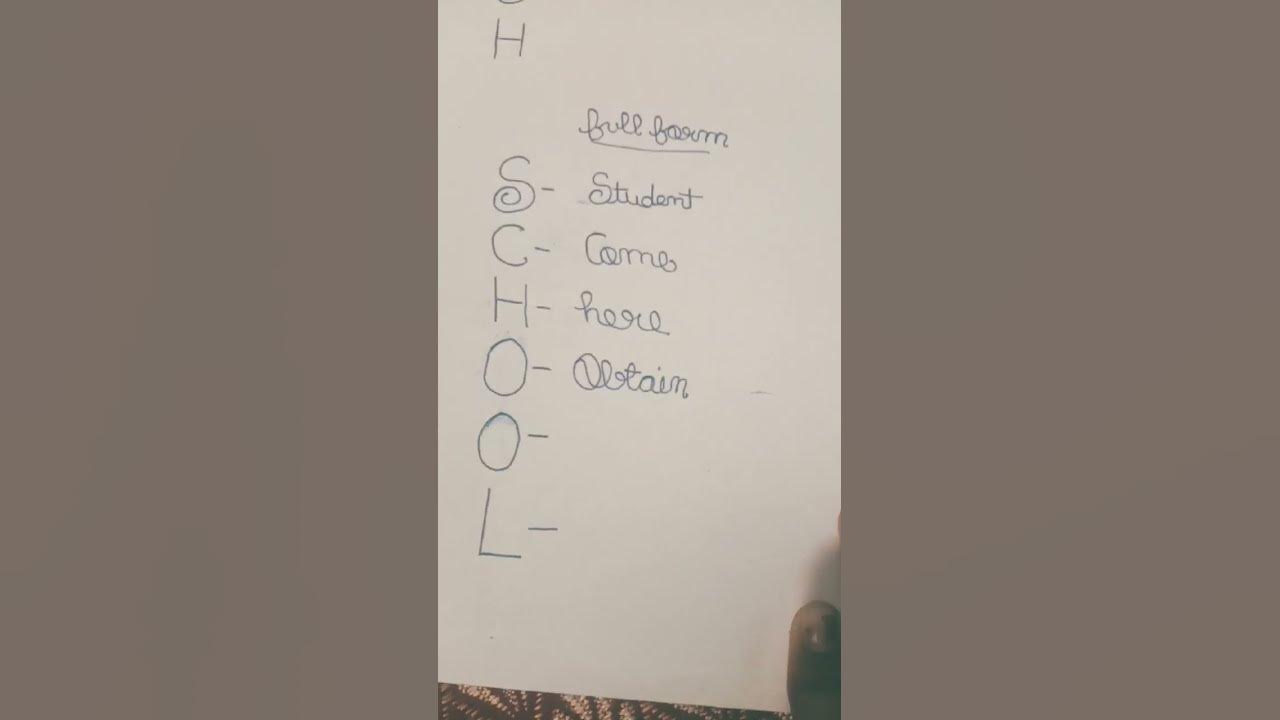 H
full form
S- Student
C- Come
H- here
O- Obtain
O-
L-